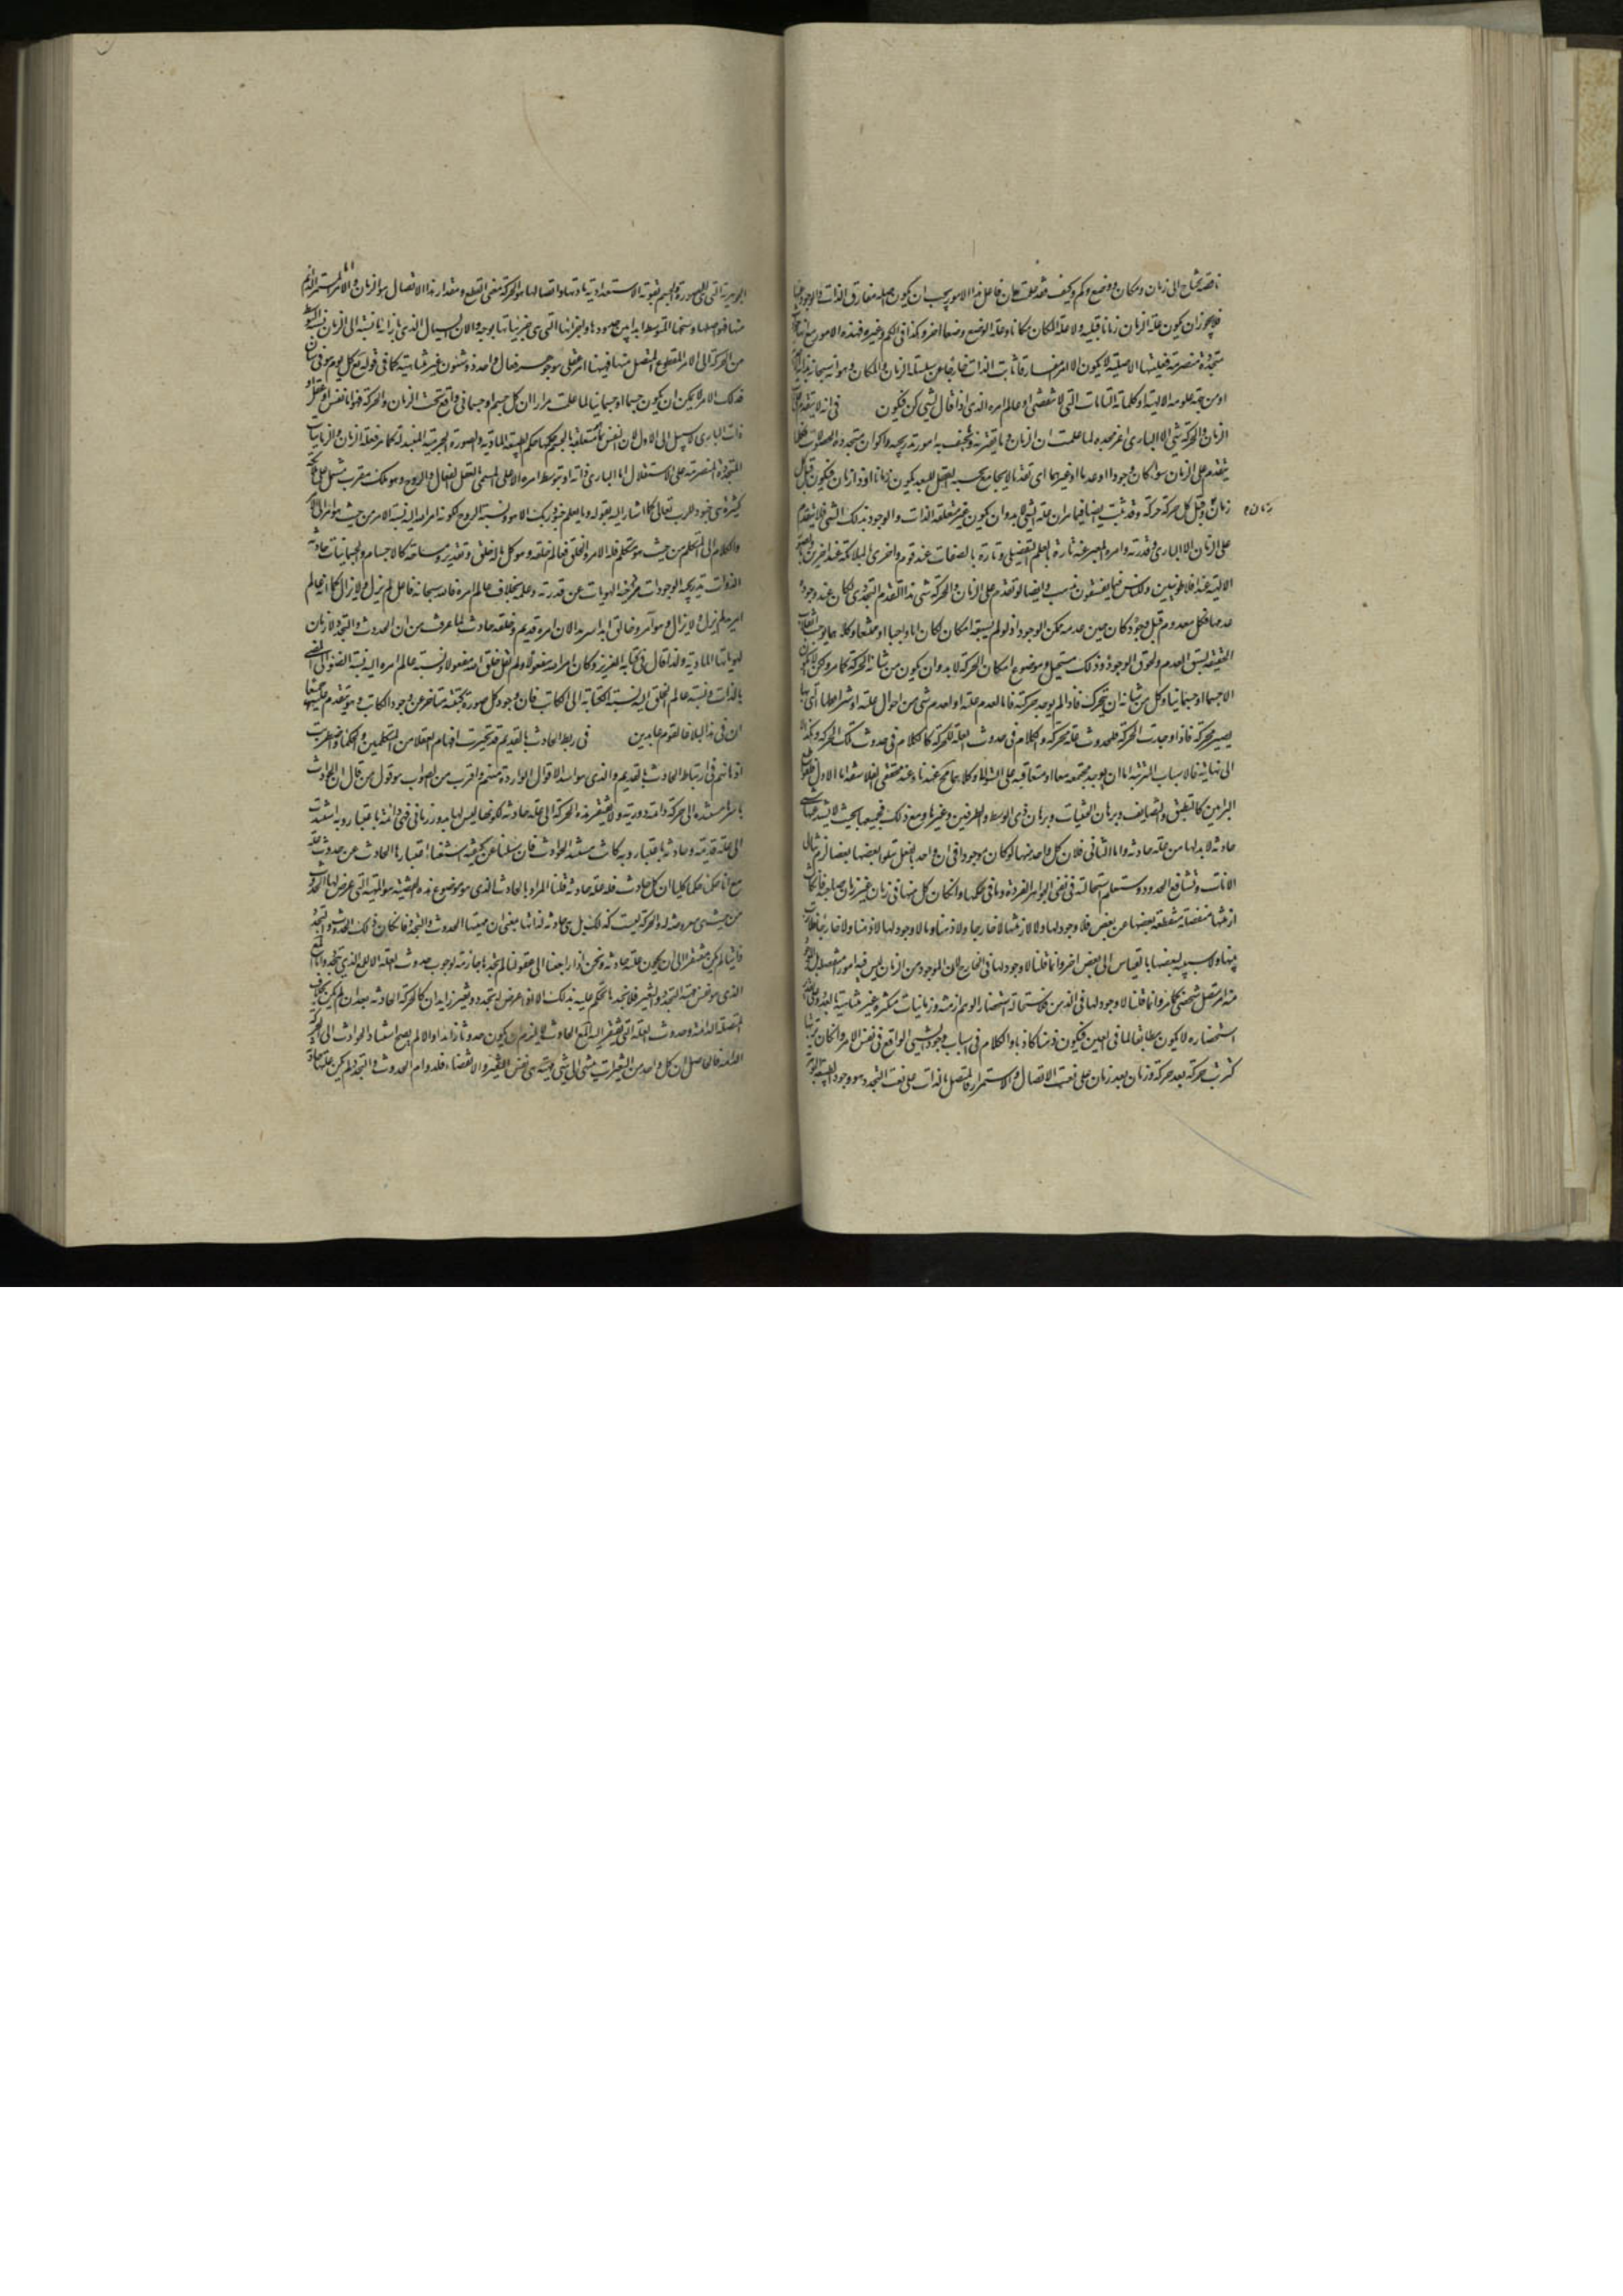 ناقصة يحتاج الى زمان ومكان ووضع وكم وكيف فقد علمت ان فاعل هذا الامور يجب ان يكون اصله مفارق الذات والوجود عنها
فلا يجوز ان يكون علة الزمان زمانا قبله ولا علة المكان مكانا وعلة الوضع وضعا اخر وكذا في الكم وغيره فهذه الامور مع انها
متجددة متصرمة فعليتها الاصلية لا يكون الا امر مفارقا ثابت الذات خارجا عن سلسلة الزمان والمكان وهو انه سبحانه
او من جهة علومه الالهية او كلماته التامات التي لا تنقضي او عالم امره الذي اذا قال لشيء كن فيكون في انه لا يتقدم على
الزمان والحركة شيء الا الباري عز مجده لما علمت ان الزمان وما يقترنه ويحتف به امور تدريجية واكوان متجددة الحصولات فكلما
يتقدم على الزمان سواء كان وجودا او عدما او غيرهما اى تقدما لا يجامع بحسبه القبل للبعد يكون زمانا او ذا زمان فيكون قبل كل
زمان
زمان وقبل كل حركة حركة وقد ثبت ايضا فيما مر ان علة الشيء لابد وان يكون غير متعلقة الذات والوجود بذلك الشيء فلا يتقدم
على الزمان الا الباري وقدرته وامره المعبر عنه تارة بالعلم التفصيلي وتارة بالصفات عند قوم واخرى بالملائكة عند اخرين وبالصور
الالهية عند الافلاطونيين وللناس فيما يعشقون مذاهب وايضا لو تقدم على الزمان والحركة شيء هذا التقدم التجددي لكان عند وجوده
عدمهما فكل معدوم قبل وجوده كان حين عدمه ممكن الوجود اذ لو لم يسبقه امكان لكان اما واجبا او ممتنعا وكلاهما يوجب انقلاب
الحقيقة لسبق العدم ولحوق الوجود وذلك مستحيل وموضوع امكان الحركة لا بد وان يكون من شانه الحركة كما مر وكل ما يكون
الا جسما او جسمانيا وكل من شانه ان يتحرك فاذا لم يوجد حركته فاما لعدم علته او لعدم شيء من احوال علته او شرائطها التي بها
يصير محركة فاذا وجدت الحركة فلحدوث علة محركة والكلام في حدوث العلة للحركة كالكلام في حدوث تلك الحركة وهكذا
الى نهاية فالاسباب المترتبة اما ان يوجد مجتمعة معا او متعاقبة على التوالي وكلاهما محال عندنا وعند محققي الفلاسفة اما الاول فلقواطع
البراهين كالتطبيق والتضايف وبرهان الحيثيات وبرهان ذي الوسط والطرفين وغيرها ومع ذلك فجميعها بحيث لا يشذ عنها شيء
حادثة لا بد لها من علة حادثة واما الثاني فلان كل واحد منها لو كان موجودا في ان واحد بالفعل يتلو بعضها بعضا لزم تتالي
الانات وتشافع الحدود وستعلم استحالته في نفي الجواهر الفردة وما في حكمها وان كان كل منها في زمان غير زمان صاحبه فان كانت
ازمنتها منفصلة منقطعة بعضها عن بعض فلا وجود لها ولا لازمنتها لا خارجا ولا ذهنا وما لا وجود لها لا ذهنا ولا خارجا فلا ترتب
بينها ولا سببية لبعضها بالقياس الى البعض اخر وانما قلنا لا وجود لها في الخارج لان الموجود من الزمان ليس فيه امور منفصلة
منه امر متصل شخصي كما مر وانما قلنا لا وجود لها في الذهن فلاستحالة استحضار الوهم ازمنة وزمانيات متكثرة غير متناهية بالعدد وعلى تقدير
استحضاره لا يكون مطابقا لما في العين فيكون ذهنا كاذبا والكلام في اسباب وجود الشيء الواقع في نفس الامر وان كان ترتبها
كترتب حركة بعد حركة وزمان بعد زمان على نعت الاتصال والاستمرار فالمتصل بالذات على نعت التجدد هو وجود الطبيعة
الجوهرية التي هي الصورة والجسم بقوته الاستعدادية مادتها واتصالها هو الحركة بمعنى القطع ومقدار هذا الاتصال هو الزمان واما الامر المستمر الدائم
منها فهو اصلها وسنخها المتوسط ابدا بين حدودها واجزائها التي هي جزئياتها بوجه والان السيال الذي بازائه نسبته الى الزمان نسبة التوسط
من الحركة الى الامر المقطوع المتصل منها فبينهما امر عقلي هو جوهر فعال واحد ذو شئون غير متناهية كما في قوله تع كل يوم هو في شان
فذلك الامر لا يمكن ان يكون جسما او جسمانيا لما علمت مرارا ان كل جسم او جسماني واقع تحت الزمان والحركة فهو اما نفس او عقل او
ذات الباري لا سبيل الى الاول لان النفس بما متعلقة بالجسم حكمها حكم الطبيعة المادية والصورة الجرمية المتبدلة كما مر فعلة الزمان والزمانيات
المتجددة المتصرمة على الاستقلال اما الباري ذاته او بتوسط امره الاعلى المسمى بالعقل الفعال والروح وهو ملك مقرب مشتمل على ملائكة
كثيرة هي جنود للرب تعالى كما اشار اليه بقوله وما يعلم جنود ربك الا هو ونسبة الروح لكونه امرا اليه نسبة الامر من حيث هو امر الى الآمر
والكلام الى المتكلم من حيث هو متكلم فله الامر والخلق فعالم خلقه وهو كل ما له خلق وتقدير ومساحة كالاجسام والجسمانيات حادثة
الذوات تدريجية الوجودات متراخية الهويات عن قدرته وعلمه بخلاف عالم امره فالله سبحانه فاعل لم يزل ولا يزال كما انه عالم
امر لم يزل ولا يزال وهو آمر وخالق ابدا سرمدا الا ان امره قديم وخلقه حادث لما عرفت من ان الحدوث والتجدد لازمان
لهوياتها المادية ولذا قال في كتابه العزيز وكان امر الله مفعولا ولم يقل خلق الله مفعولا ونسبة عالم امره اليه نسبة الضوء الى المضيء
بالذات ونسبة عالم الخلق اليه نسبة الكتابة الى الكاتب فان وجود كل صورة كتبية متاخر عن وجود الكاتب وهو مقدم عليهما جميعا
ان في هذا لبلاغا لقوم عابدين في ربط الحادث بالقديم قد تحيرت افهام العقلاء من المتكلمين والحكماء واضطربت
اذهانهم في ارتباط الحادث بالقديم والذي هو اسد الاقوال الواردة منهم واقرب من الصواب هو قول من قال ان الحوادث
باسرها مستندة الى حركة دائمة دورية ولا يفتقر هذه الحركة الى علة حادثة لكونها ليس لها بدو زماني فهي دائمة باعتبار وبه استندت
الى علة قديمة وحادثة باعتبار وبه كانت مستند الحوادث فان سئلنا عن كيفية استغناء اعتبارها الحادث عن حدوث علة
مع انا حكمنا حكما كليا ان كل حادث فله علة حادثة قلنا المراد بالحادث الذي هو موضوع هذه القضية هو الماهية التي عرض لها الحدوث
من حيث هي معروضة له والحركة ليست كذلك بل هي حادثة لذاتها بمعنى ان ماهيتها الحدوث والتجدد فان كان ذلك الحدوث والتجدد
ذاتيا لم يكن مفتقرا الى ان يكون علته حادثة ونحن اذا راجعنا الى عقولنا لم نجدها جازمة لوجوب حدوث العلة الا للمعلول الذي يتجدد واما
الذي هو نفس ماهية التجدد والتغير فلا نجدها تحكم عليه بذلك الا اذا عرض له تجدد وتغير زايدان كالحركة الحادثة بعد ان لم يكن بخلاف
المتصلة الدائمة وحدوث العلة التي يفتقر اليها المعلول الحادث لا يلزم ان يكون حدوثا زايدا والا لم يصح استناد الحوادث الى الحركة
الدائمة فالحاصل ان كل واحد من التغيرات ينتهي الى شيء ماهيته هي نفس التغير والانقضاء فلدوام الحدوث والتجدد لم يكن علتها حادثة